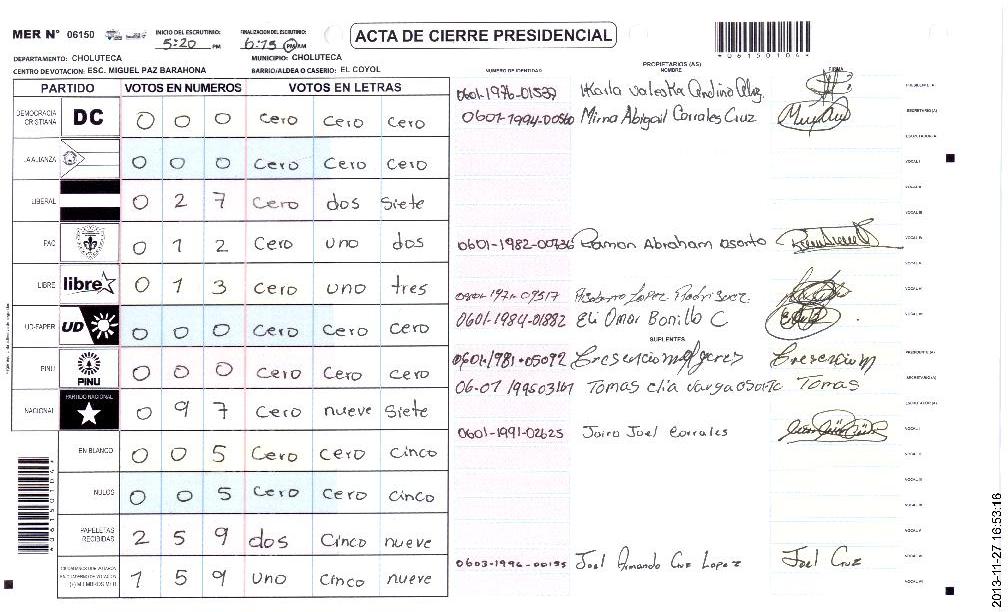 MER N° 06150 INICIO DEL ESCRUTINIO: 5:20 PM FINALIZACION DEL ESCRUTINIO: PM AM
ACTA DE CIERRE PRESIDENCIAL
*061501044
DEPARTAMENTO: CHOLUTECA MUNICIPIO: CHOLUTECA
CENTRO DE VOTACION: ESC. MIGUEL PAZ BARAHONA BARRIO/ALDEA O CASERIO: EL COYOL
PARTIDO VOTOS EN NUMEROS VOTOS EN LETRAS
DEMOCRACIA CRISTIANA DC 0 0 0 Cero Cero Cero
LA ALIANZA 0 0 0 Cero Cero Cero
LIBERAL 0 2 7 Cero dos Siete
PAC 0 1 2 Cero uno dos
LIBRE libre 0 1 3 Cero uno tres
UD-FAPER UD 0 0 0 Cero Cero Cero
PINU PINU 0 0 0 Cero Cero Cero
NACIONAL PARTIDO NACIONAL 0 9 7 Cero nueve Siete
EN BLANCO 0 0 5 Cero Cero Cinco
NULOS 0 0 5 Cero Cero Cinco
PAPELETAS RECIBIDAS 2 5 9 dos Cinco nueve
1 5 9 uno Cinco nueve
NUMERO DE IDENTIDAD PROPIETARIOS (AS) NOMBRE FIRMA
0601-1976-01539 Karla Valeska PRESIDENTE (A)
0601-1994-00560 Mirna Abigail Corrales Cruz SECRETARIO(A)
ESCRUTADOR(A)
VOCAL I
VOCAL II
VOCAL III
0601-1982-00736 Ramon Abraham osorto VOCAL IV
Lopez Rodriguez VOCAL V
0601-1984-01882 Eli Omar Bonilla C VOCAL VI
SUPLENTES
0601-1981-05092 PRESIDENTE (A)
Tomas elia varga osorto Tomas SECRETARIO(A)
ESCRUTADOR(A)
0601-1991-02625 Jairo Joel Corrales VOCAL I
VOCAL II
VOCAL III
VOCAL IV
VOCAL V
0603-1996-00155 Joel Armando Cruz Lopez Joel Cruz
VOCAL VI
2013-11-27 16:53:16